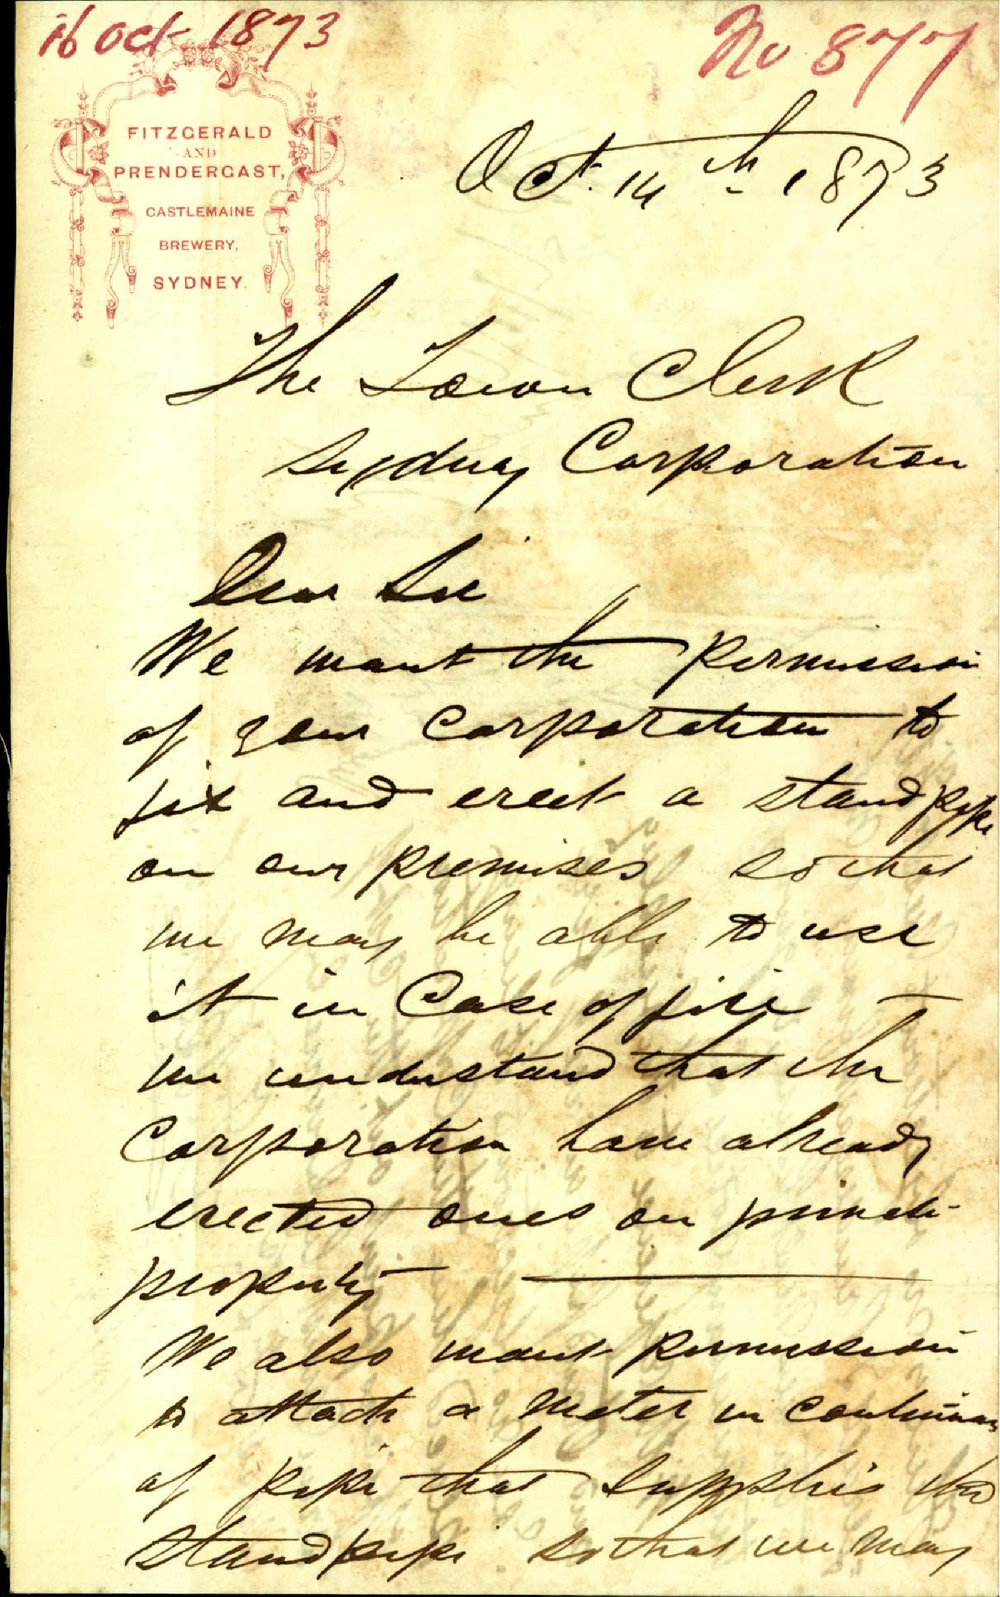 16 Oct 1873
No 877
FITZGERALD
AND
PRENDERGAST,
CASTLEMAINE
BREWERY,
SYDNEY.
Oct. 14th 1873
The Town Clerk
Sydney Corporation
Dear Sir
We want the permission
of your Corporation to
fix and erect a standpipe
on our premises so that
we may be able to use
it in Case of fire —
we understand that the
Corporation have already
erected ones on private
property — —
We also want permission
to attach a Meter in
of pipe that supplies the
standpipe so that we may